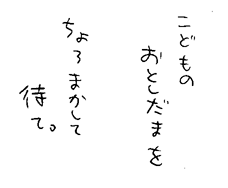 こどもの
おとしだまを
ちょろまかして
待て。